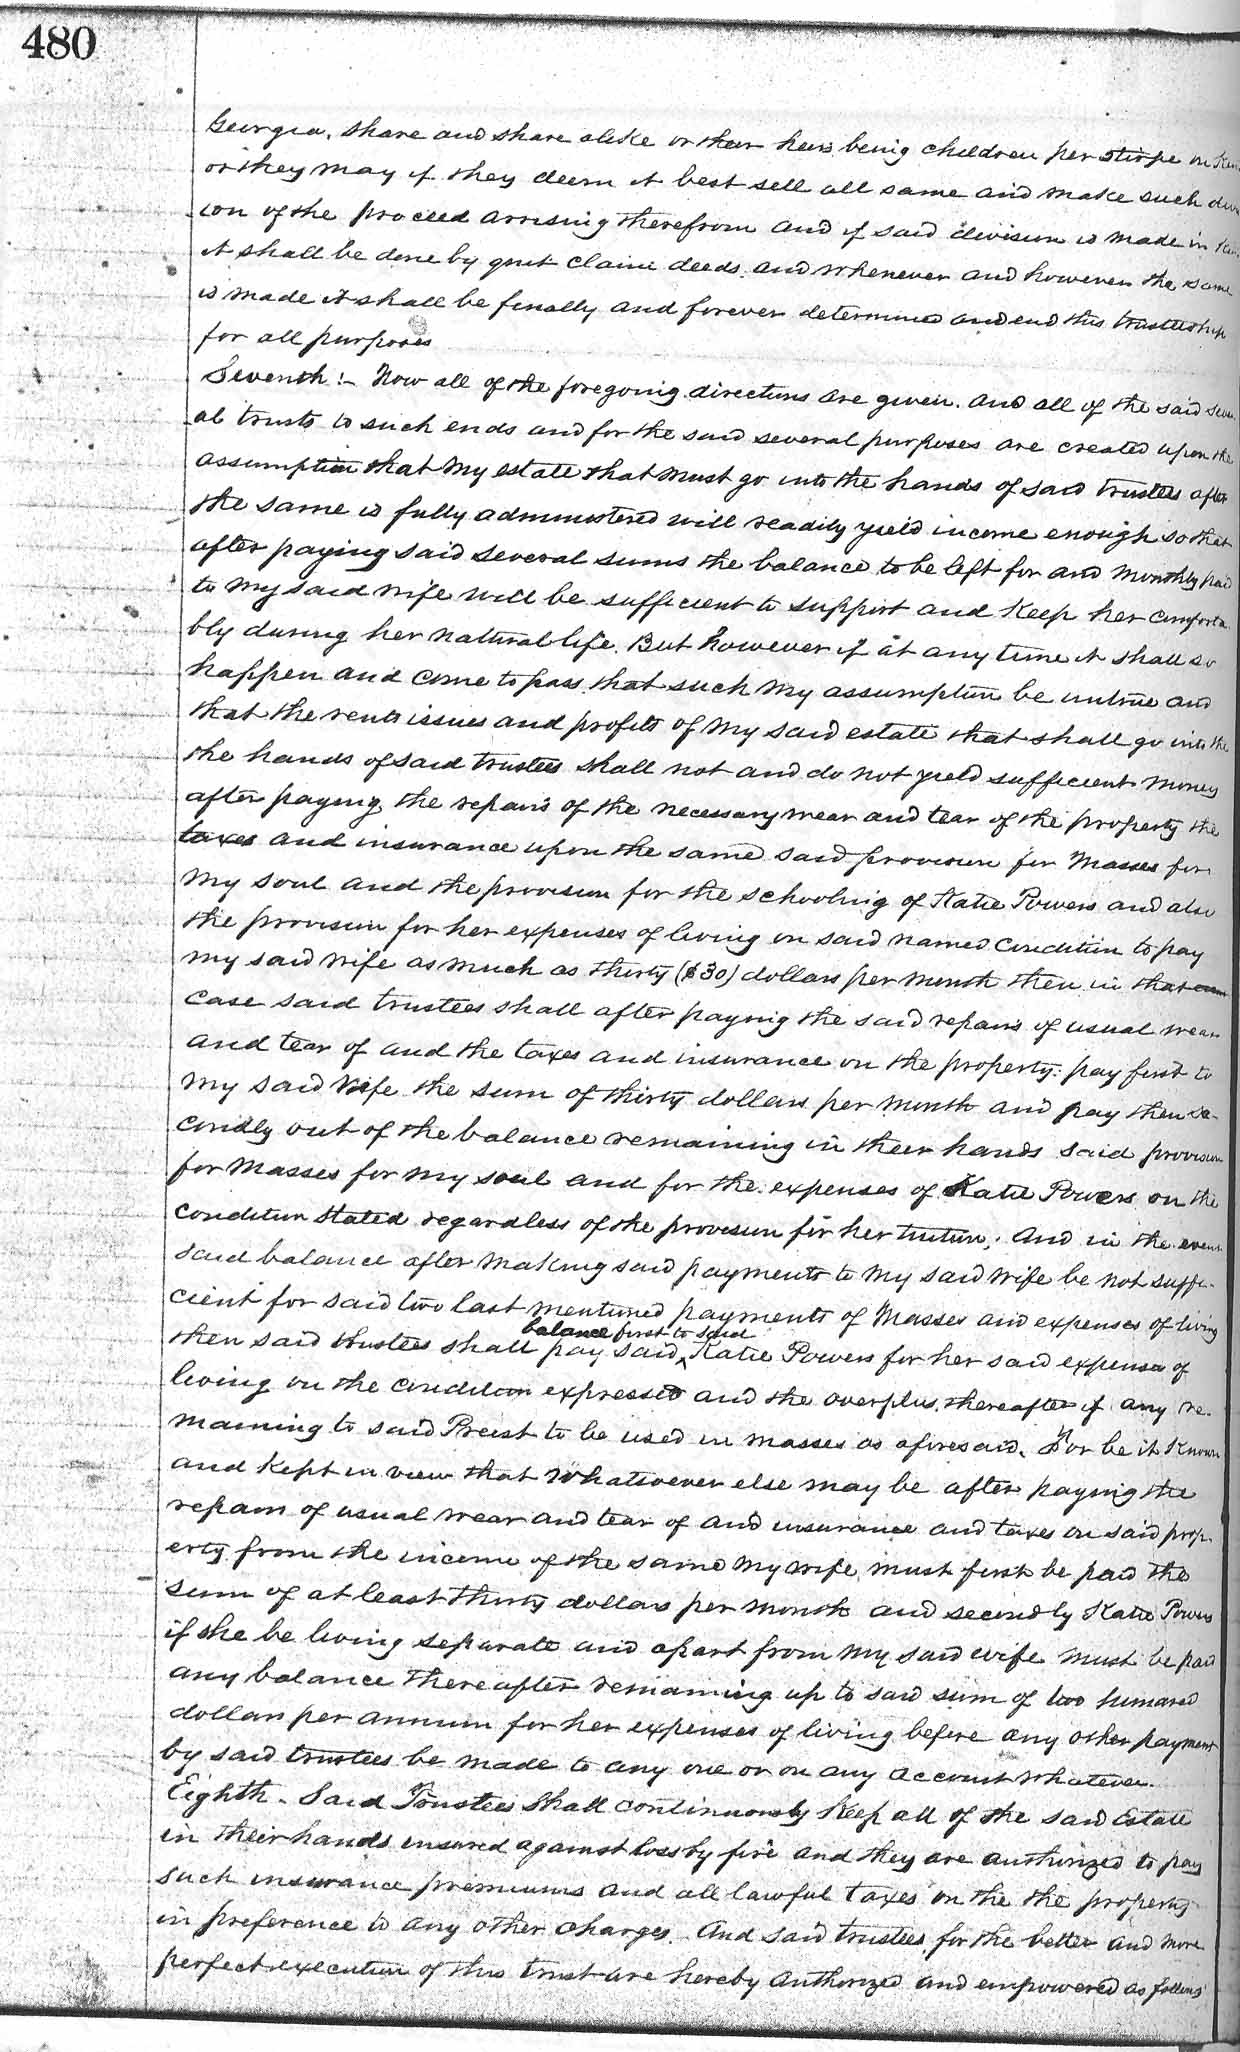 480
Georgia, share and share alike or their heirs being children per stirpe in Kin
or they may if they deem it best sell all same and make such divis
ion of the proceed arrising therefrom and if said division is made in Kin
it shall be done by quit claim deeds and whenever and however the same
is made it shall be finally and forever determined and end this trusteeship
for all purposes
Seventh:- Now all of the foregoing directions are given. and all of the said sever
al trusts to such ends and for the said several purposes are created upon the
assumption that my estate that must go into the hands of said trustees after
the same is fully administered will readily yield income enough so that
after paying said several sums the balance to be left for and monthly paid
to my said wife will be sufficient to support and Keep her comforta
bly during her natural life. But however if at any time it shall so
happen and come to pass that such my assumption be untrue and
that the rents issues and profits of my said estate that shall go into the
the hands of said trustees shall not and do not yield sufficient money
after paying the repairs of the necessary wear and tear of the property the
taxes and insurance upon the same said provision for Masses for
my soul and the provision for the schooling of Katie Powers and also
the provision for her expenses of living on said named condition to pay
my said wife as much as thirty ($30) dollars per month then in that
case said trustees shall after paying the said repairs of usual wear
and tear of and the taxes and insurance on the property: pay first to
my said wife the sum of thirty dollars per month and pay then se-
condly out of the balance remaining in their hands said provision
for Masses for my soul and for the expenses of Katie Powers on the
condition stated regardless of the provision for her tuition; And in the event
said balance after making said payments to my said wife be not suffi-
cient for said two last mentioned payments of Masses and expenses of living
balance first to said
then said trustees shall pay said Katie Powers for her said expense of
living on the condition expressed and the overplus thereafter if any re-
maining to said Preist to be used in masses as aforesaid. For be it Known
and Kept in view that whatsoever else may be after paying the
repairs of usual wear and tear of and insurance and taxes on said prop-
erty from the income of the same my wife must first be paid the
sum of at least thirty dollars per month and secondly Katie Powers
if she be living separate and apart from my said wife must be paid
any balance thereafter remaining up to said sum of two hundred
dollars per annum for her expenses of living before any other payment
by said trustees be made to any one or on any account whatever.
Eighth. Said Trustees shall continuously Keep all of the said Estate
in their hands insured against loss by fire and they are authorized to pay
such insurance premiums and all lawful taxes on the the property
in preference to any other charges. And said trustees for the better and more
perfect execution of this trust are hereby authorized and empowered as follows